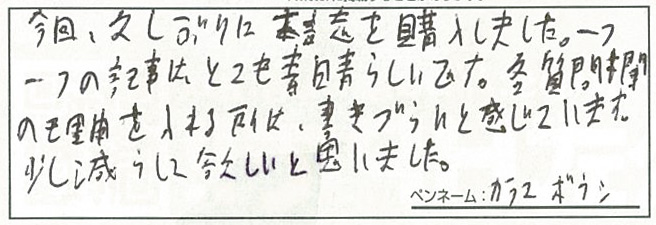 今回、久しぶりに本誌を購入しました。一つ
一つの記事はとても素晴らしいです。各質問事闌
の理由を入れる所は、書きづらいと感じています。
少し減らして欲しいと思いました。
ペンネーム：カラスボウシ